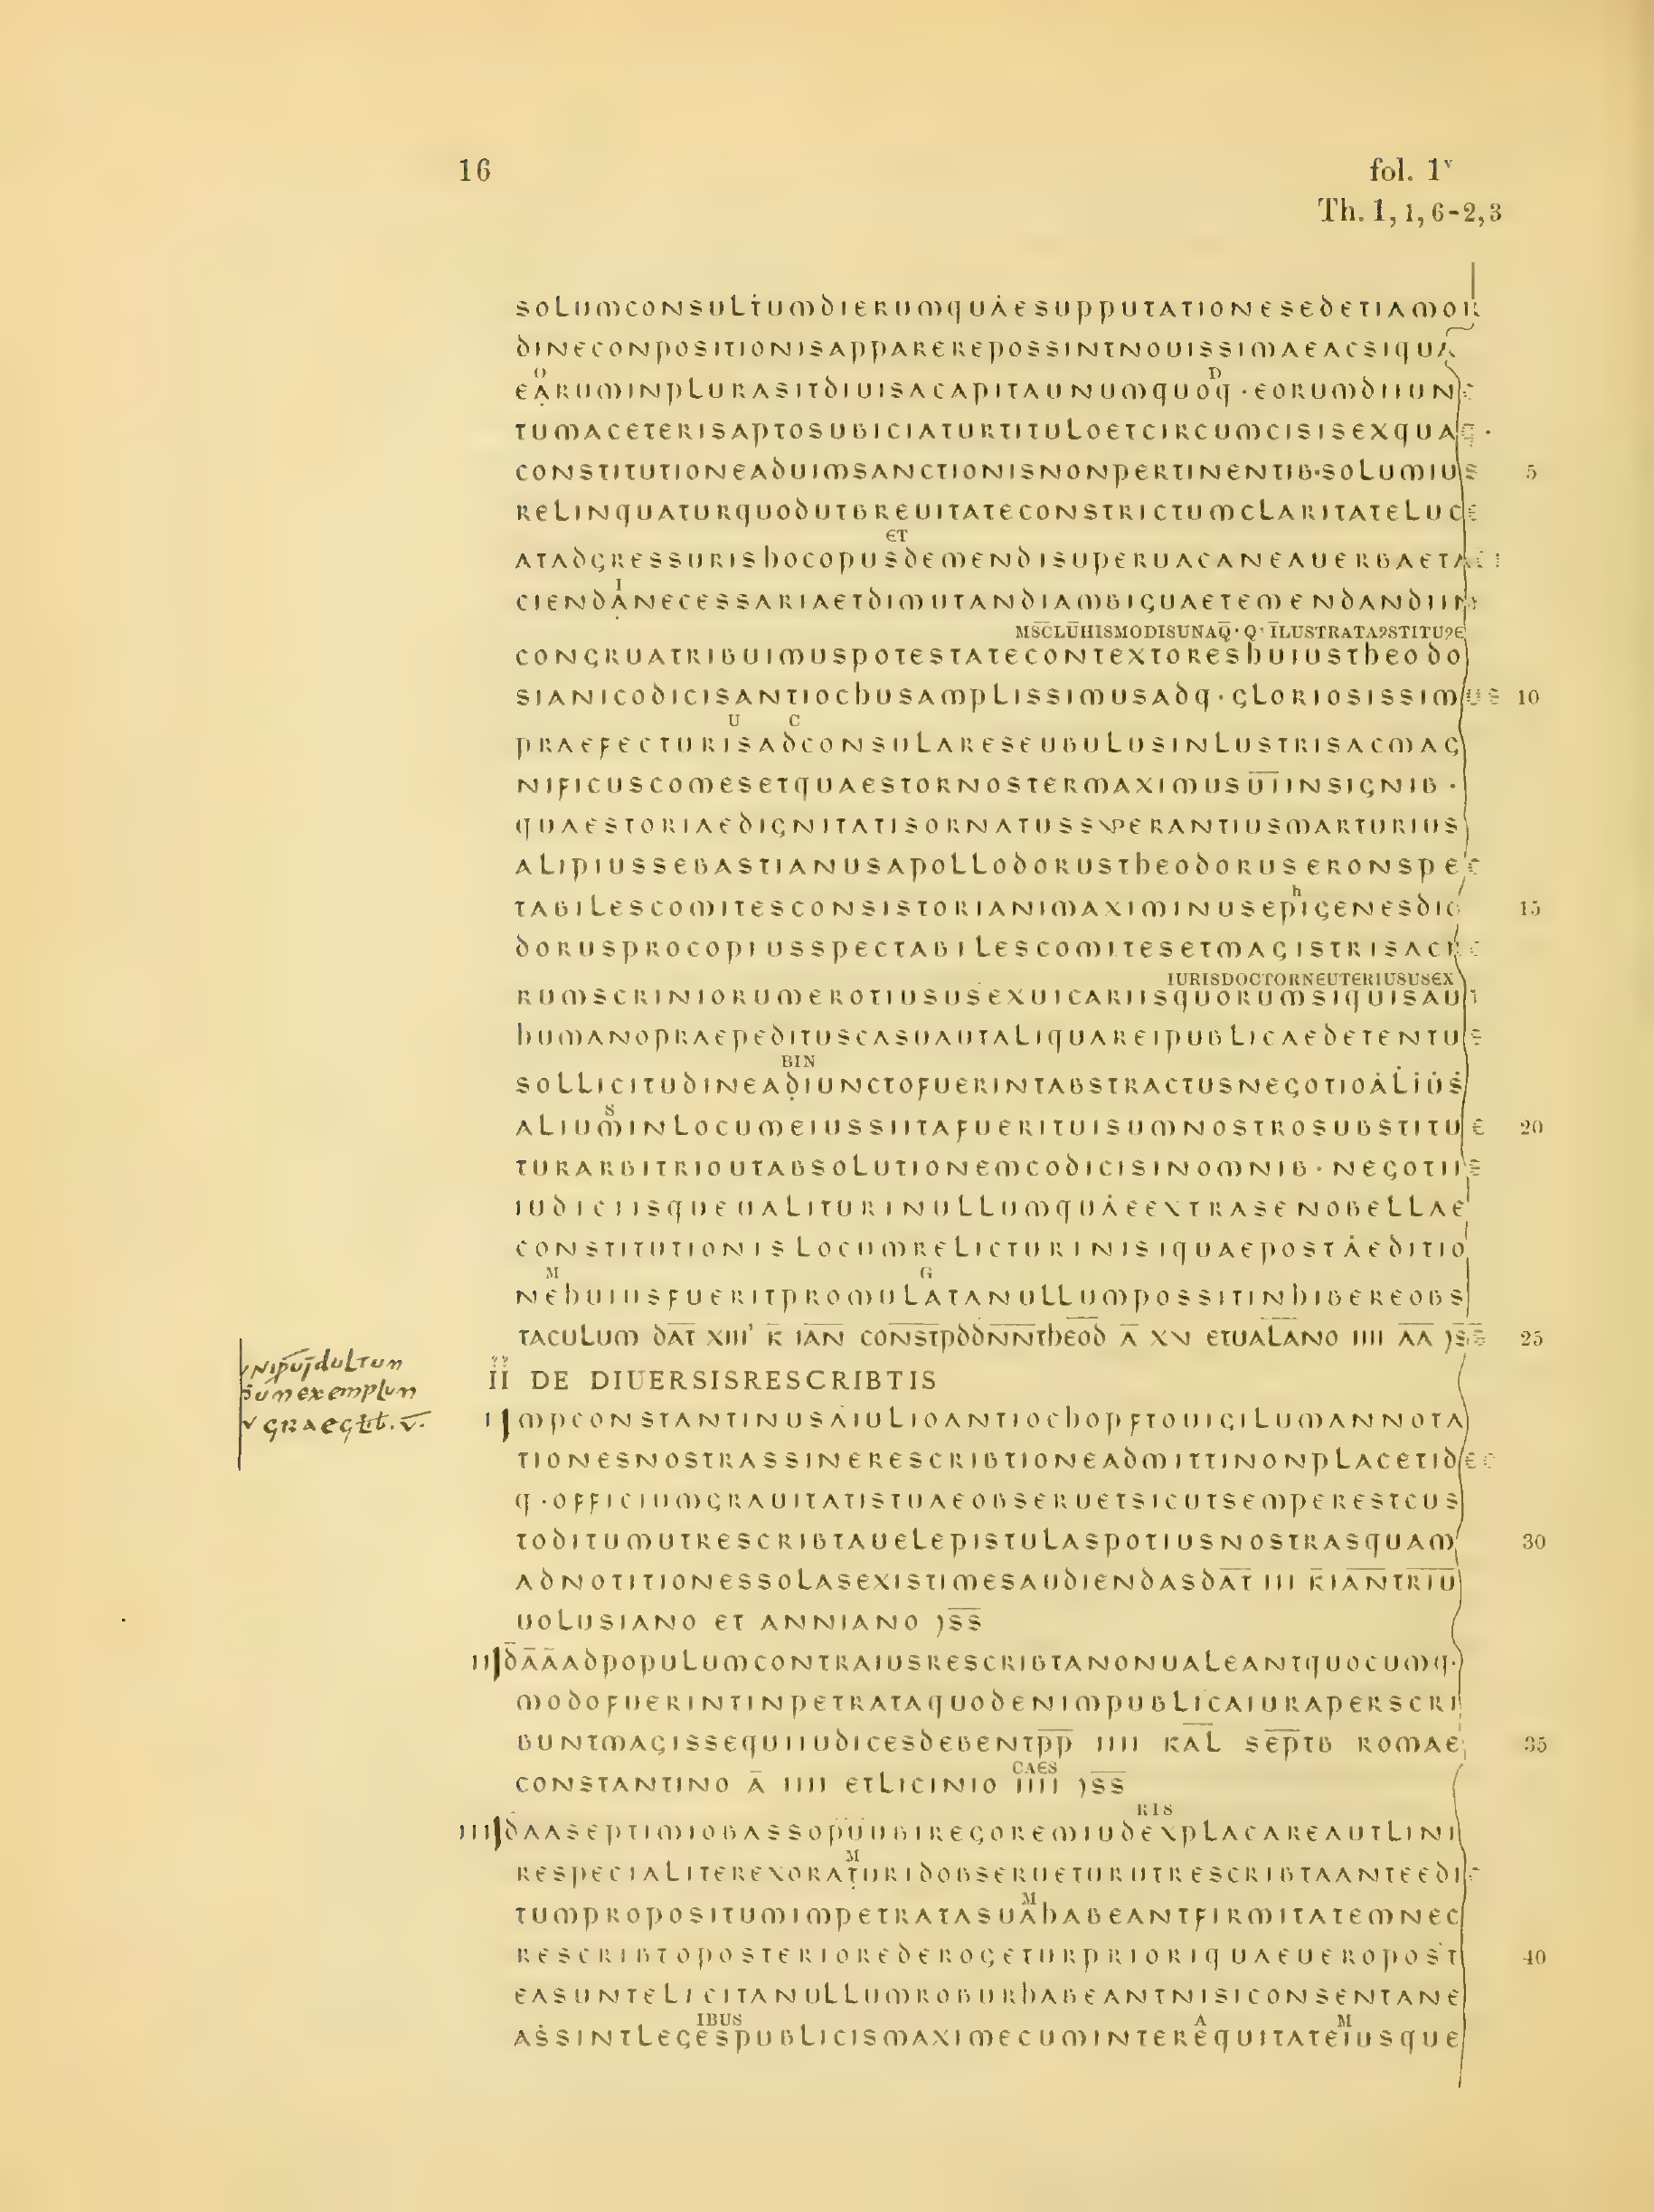 16
fol. 1v
Th. 1, 1, 6-2, 3
SOLUMCONSULTUMDIERUMQUAESUPPUTATIONESEDETIAMOR
DINECONPOSITIONISAPPAREREPOSSINTNOUISSIMAEACSIQUA
O D
EARUMINPLURASITDIUISACAPITAUNUMQUOQ·EORUMDIIUNC
TUMACETERISAPTOSUBICIATURTITULOETCIRCUMCISISEXQUAQ·
CONSTITUTIONEADUIMSANCTIONISNONPERTINENTIB·SOLUMIUS 5
RELINQUATURQUODUTBREUITATECONSTRICTUMCLARITATELUCE
ET
ATADGRESSURISHOCOPUSDEMENDISUPERUACANEAUERBAETA
I
CIENDANECESSARIAETDIMUTANDIAMBIGUAETEMENDANDIIN
MS̅C̅LU̅HISMODISUNAQ̅·Q·I̅LUSTRATAꝯSTITUꝯE
CONGRUATRIBUIMUSPOTESTATECONTEXTORESHUIUSTHEODO
SIANICODICISANTIOCHUSAMPLISSIMUSADQ·GLORIOSISSIMUS 10
U C
PRAEFECTURISADCONSULARESEUBULUSINLUSTRISACMAG
NIFICUSCOMESETQUAESTORNOSTERMAXIMUSU̅I̅INSIGNIB·
QUAESTORIAEDIGNITATISORNATUSSVPERANTIUSMARTURIUS
ALIPIUSSEBASTIANUSAPOLLODORUSTHEODORUSERONSPEC
h
TABILESCOMITESCONSISTORIANIMAXIMINUSEPIGENESDIO 15
DORUSPROCOPIUSSPECTABILESCOMITESETMAGISTRISACR
IURISDOCTORNEUTERIUSUSEX
RUMSCRINIORUMEROTIUSUSEXUICARIISQUORUMSIQUISAU
HUMANOPRAEPEDITUSCASUAUTALIQUAREIPUBLICAEDETENTUS
BIN
SOLLICITUDINEADIUNCTOFUERINTABSTRACTUSNEGOTIOȦLİU̇Ṡ
S
ALIUMINLOCUMEIUSSIITAFUERITUISUMNOSTROSUBSTITUE 20
TURARBITRIOUTABSOLUTIONEMCODICISINOMNIB·NEGOTIIS
IUDICIISQUEUALITURINULLUMQUȦEEXTRASENOBELLAE
CONSTITUTIONISLOCUMRELICTURINISIQUAEPOSTȦEDITIO
M G
NEHUIUSFUERITPROMULATANULLUMPOSSITINHIBEREOBS
TACULUM DA̅T̅ XIII' K̅ IA̅N̅ CONS̅T̅PDDN̅N̅THEO̅D̅ A̅ XV ETUALANO IIII A̅A̅ )S̅S̅ 25
II DE DIUERSISRESCRIBTIS
I IMPCONSTANTINUSAIULIOANTIOCHOPFTOUIGILUMANNOTA
TIONESNOSTRASSINERESCRIBTIONEADMITTINONPLACETIDEO
Q·OFFICIUMGRAUITATISTUAEOBSERUETSICUTSEMPERESTCUS
TODITUMUTRESCRIBTAUELEPISTULASPOTIUSNOSTRASQUAM 30
ADNOTITIONESSOLASEXISTIMESAUDIENDASDA̅T̅ III K̅IA̅N̅TRI̅U̅
UOLUSIANO ET ANNIANO )S̅S̅
II D̅A̅A̅ADPOPULUMCONTRAIUSRESCRIBTANONUALEANTQUOCUMQ·
MODOFUERINTINPETRATAQUODENIMPUBLICAIURAPERSCRI
BUNTMAGISSEQUIIUDICESDEBENTP̅P̅ IIII KA̅L̅ SE̅P̅T̅B ROMAE 35
CAES
CONSTANTINO A̅ IIII ETLICINIO IIII )S̅S̅
RIS
III DAASEPTIMIOBASSOPUUBIREGOREMIUDEXPLACAREAUTLINI
M
RESPECIALITEREXORATURIDOBSERUETURUTRESCRIBTAANTEEDI
M
TUMPROPOSITUMIMPETRATASUAHABEANTFIRMITATEMNEC
RESCRIBTOPOSTERIOREDEROGETURPRIORIQUAEUEROPOST 40
EASUNTELICITANULLUMROBURHABEANTNISICONSENTANE
IBUS A M
AṠSINTLEGESPUBLICISMAXIMECUMINTEREQUITATEIUSQUE